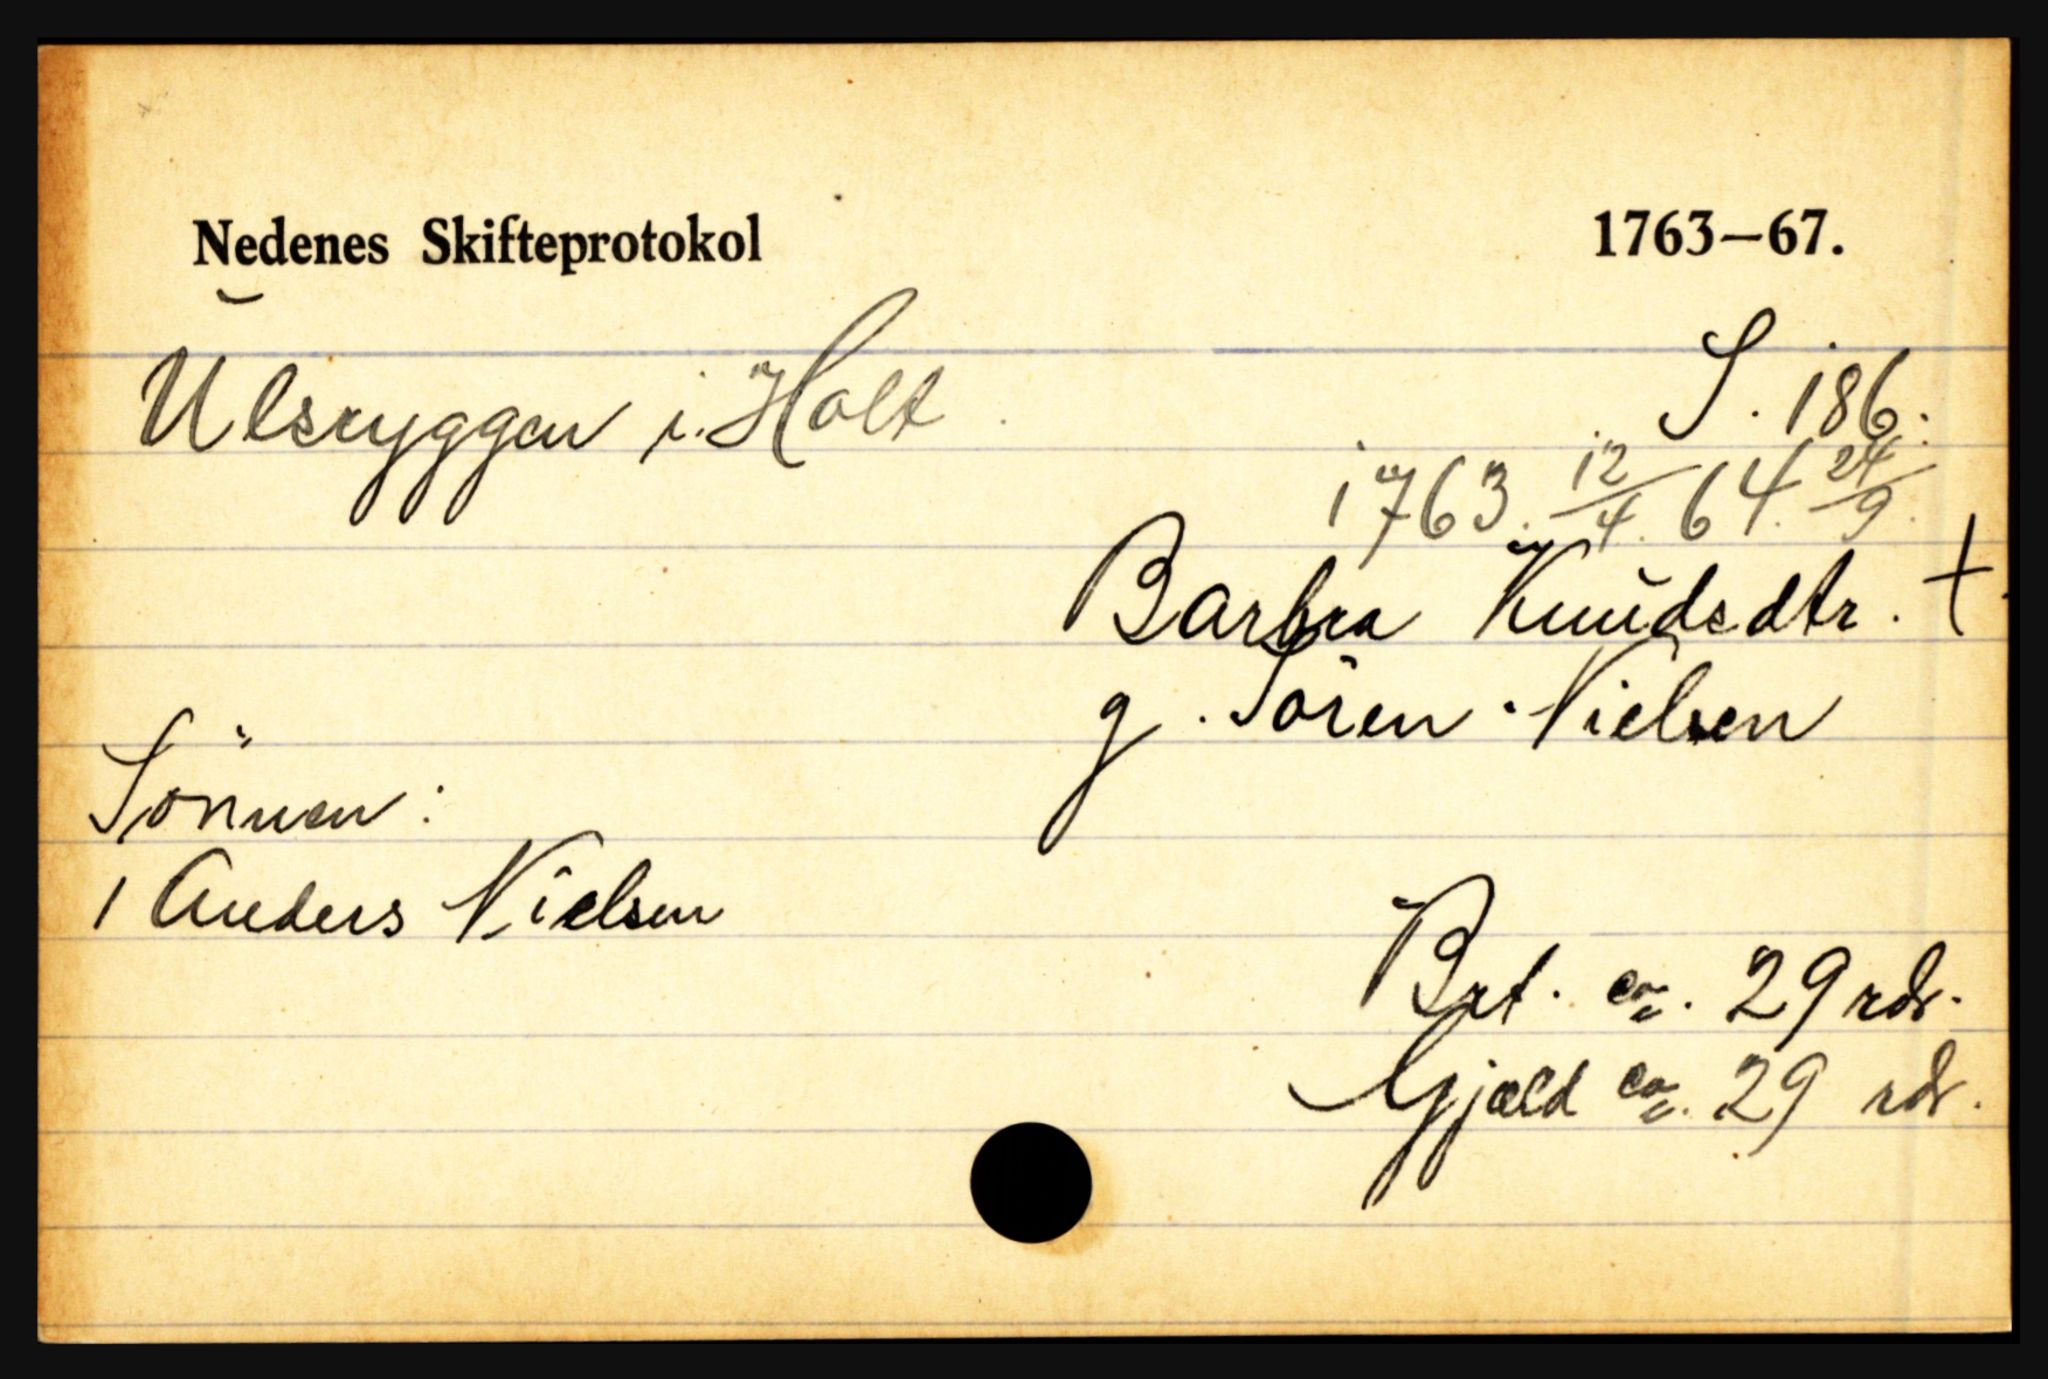 Nedenes Skifteprotokol 1763—67.
Ulsryggen i Holt S. 186.
1763. 12/4. 64. 24/9.
Barbra Knudsdtr. †
g. Sören Nielsen
Sönnen:
1 Anders Nielsen
Brt. ca. 29 rdr.
Gjæld ca. 29 rdr.